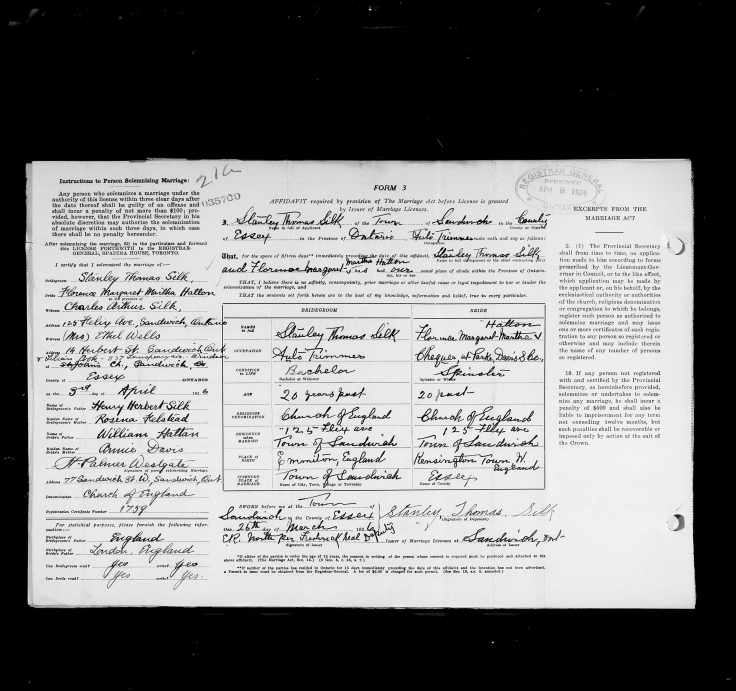 Instructions to Person Solemnizing Marriage:
Any person who solemnizes a marriage under the
authority of this license within three clear days after
the date thereof shall be guilty of an offense and
shall incur a penalty of not more than $100; pro-
vided, however, that the Provincial Secretary in his
absolute discretion may authorize the solemnization
of marriage within such three days, in which case
there shall be no penalty hereunder.
After solemnizing the marriage, fill in the particulars and forward
this LICENSE FORTHWITH to the REGISTRAR-
GENERAL, SPADINA HOUSE, TORONTO.
I certify that I solemnized the marriage of—
Bridegroom Stanley Thomas Silk,
Bride Florence Margaret Martha Hatton
in the presence of
Witness Charles Arthur Silk,
Address 125 Felix Ave, Sandwich, Ontario
Witness (Mrs) Ethel Wells
Address 14 Herbert St. Sandwich, Ont
at St Johns Ch, Sandwich,
County of Essex ONTARIO
on the 3rd day of April 1926
Name of Bridegroom's Father Henry Herbert Silk
Maiden Name of Bridegroom's Mother Rosena Felstead
Name of Bride's Father William Hatton
Maiden Name of Bride's Mother Annie Davis
H. Palmer Westgate
Signature of person solemnizing Marriage.
Address 77 Sandwich St. W, Sandwich, Ont
Denomination Church of England
Registration Certificate Number 1739
For statistical purposes, please furnish the following infor-
mation:—
Birthplace of Bridegroom's Father England
Birthplace of Bride's Father London, England
Can Bridegroom read? yes write? yes
Can Bride read? yes write? yes.
21a
035700
FORM 3
AFFIDAVIT required by provision of The Marriage Act before License is granted
by Issuer of Marriage Licenses.
I, Stanley Thomas Silk of the Town of Sandwich in the County
of Essex in the Province of Ontario Auto Trimmer make oath and say as follows:
That, for the space of fifteen days** immediately preceding the date of this affidavit, Stanley Thomas Silk
and Florence Margaret Martha Hatton had our usual place of abode within the Province of Ontario.
THAT, I believe there is no affinity, consanguinity, prior marriage or other lawful cause or legal impediment to bar or hinder the
solemnization of the marriage, and
THAT the contents set forth below are to the best of my knowledge, information and belief, true in every particular.
BRIDEGROOM BRIDE
NAMES in full Stanley Thomas Silk Florence Margaret Martha Hatton
OCCUPATION Auto Trimmer Checker at Parke, Davis & Co.
CONDITION IN LIFE Bachelor Spinster
Bachelor or Widower Spinster or Widow
AGE 20 years past 20 past
RELIGIOUS DENOMINATION Church of England Church of England
RESIDENCE when MARRIED 125 Felix ave Town of Sandwich 125 Felix ave Town of Sandwich
PLACE of BIRTH England Kensington Town England
INTENDED PLACE of MARRIAGE Town of Sandwich Essex
Name of City, Town, Village or Township Name of County
SWORN before me at the Town of
Sandwich in the County of Essex Stanley Thomas Silk
(Signature of Deponent)
this 26th day of March 1926
C.R. North per Frederick Neal Deputy Issuer of Marriage Licenses at Sandwich, Ont
Signature of Issuer Address of Issuer
REGISTRAR GENERAL
RECEIVED
APR 8 1926
EXCERPTS FROM THE
MARRIAGE ACT
2. (1) The Provincial Secretary
shall from time to time, on appli-
cation made to him according to forms
prescribed by the Lieutenant-Gov-
ernor in Council, or to the like effect,
which application may be made by
the applicant or, on his behalf, by the
ecclesiastical authority or authorities
of the church, religious denomination
or congregation to which he belongs,
register such person as authorized to
solemnize marriage and may issue
one or more certificates of such regist-
ration to any person so registered or
otherwise and may include therein
the name of any number of persons
so registered.
18. If any person not registered
with and certified by the Provincial
Secretary, as hereinbefore provided,
solemnizes or undertakes to solem-
nize any marriage, he shall incur a
penalty of $500 and shall also be
liable to imprisonment for any term
not exceeding twelve months, but
such penalties shall be recoverable or
imposed only by action at the suit of
the Crown.